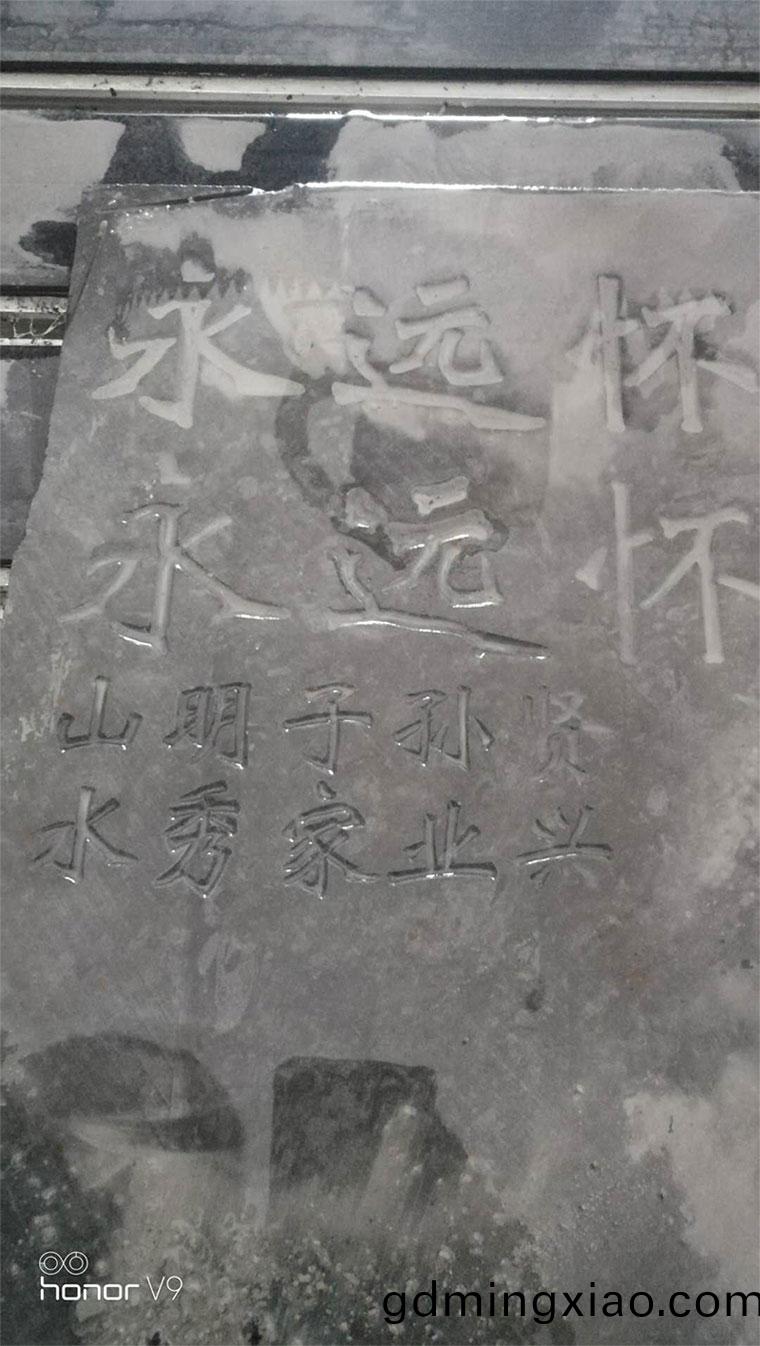 永远怀
永远怀
山明子孙贤
水秀家业兴
honor V9
gdmingxiao.com